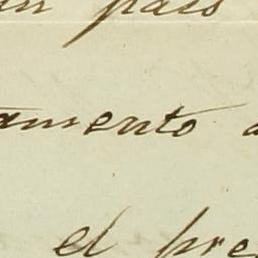 un pais
amento a
el pre